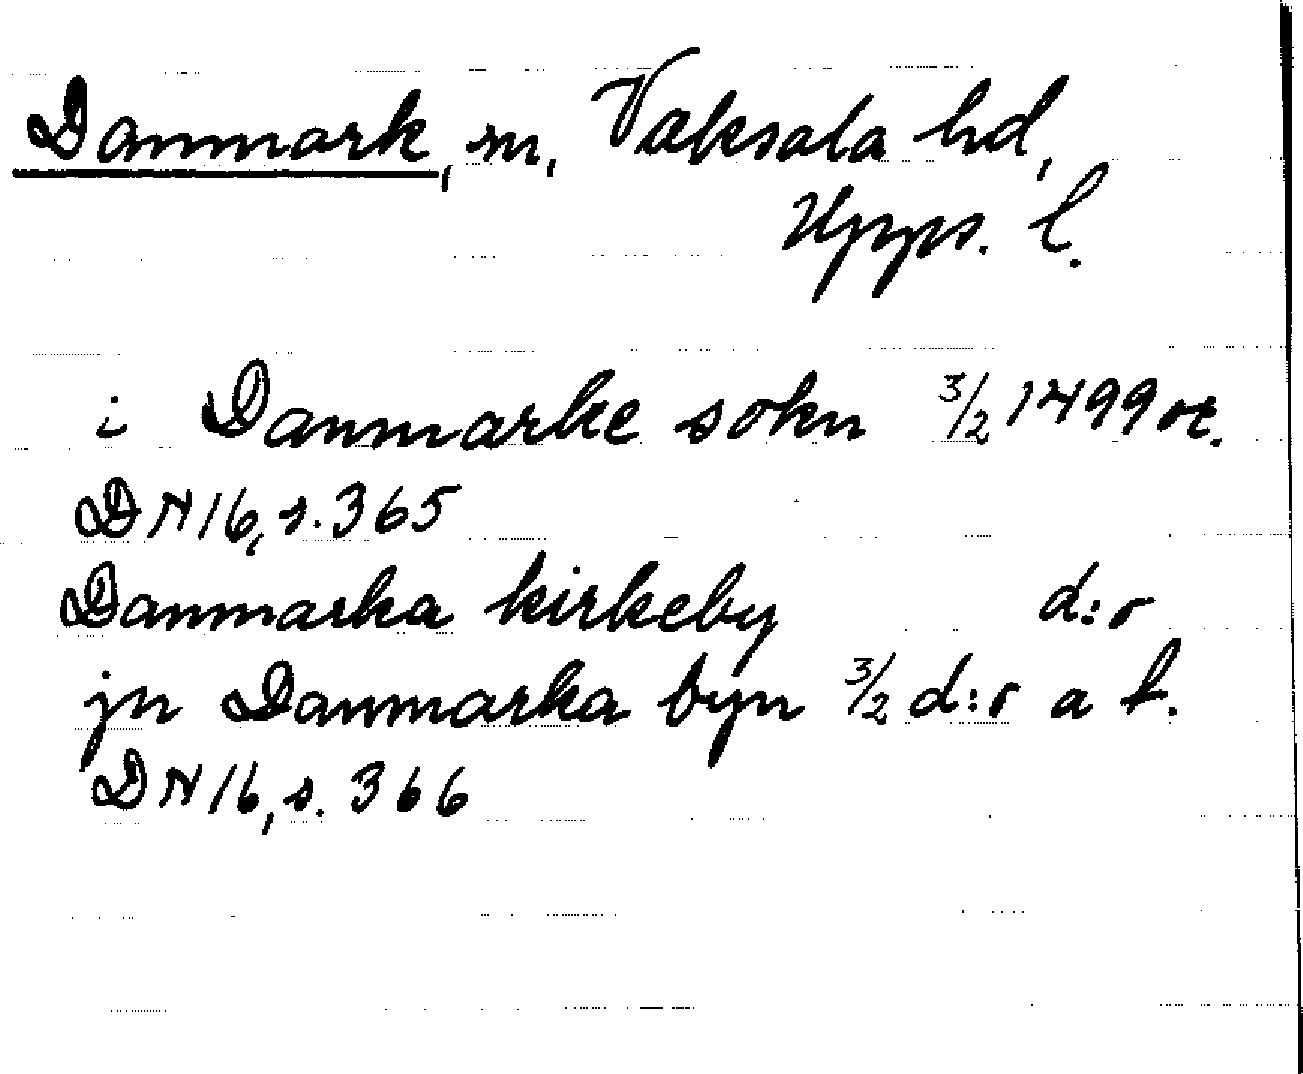 Danmark, sn, Vaksala hd,
Upps. l.
i Danmarke sokn 3/2 1499 or.
DN 16, s. 365
Danmarka kirkeby d:o
jn Danmarka byn 3/2 d:o a f.
DN 16, s. 366